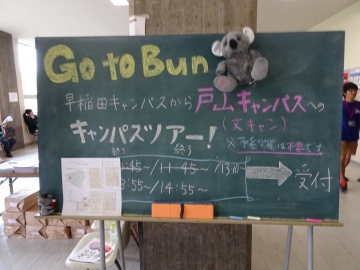 Go to Bun
早稲田キャンパスから戸山キャンパスへの
(文キャン)
キャンパスツアー!
※予約等は不要です
終了 終了
10:45~/11:45~/13:10~
13:55~/14:55~
受付